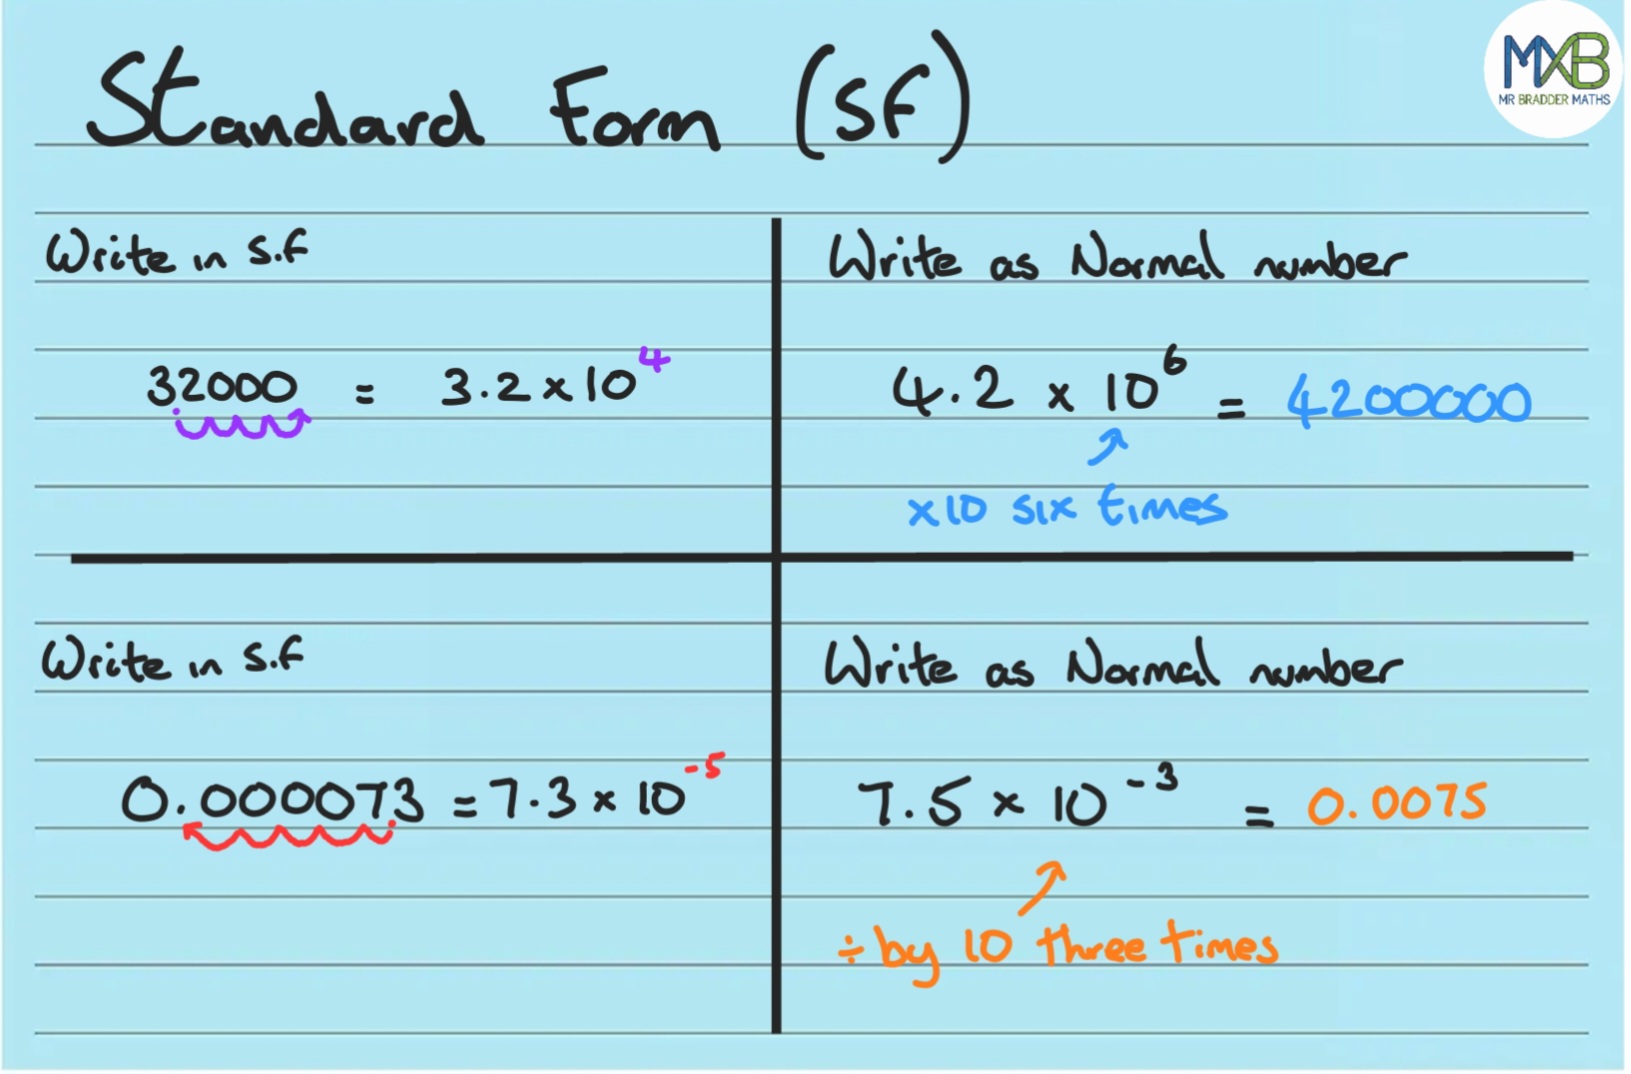 Standard Form (SF)
MXB
MR BRADDER MATHS
Write in S.f
32000 = 3.2 x 10⁴
Write as Normal number
4.2 x 10⁶ = 4200000
x10 six times
Write in S.f
0.000073 = 7.3 x 10⁻⁵
Write as Normal number
7.5 x 10⁻³ = 0.0075
÷ by 10 three times